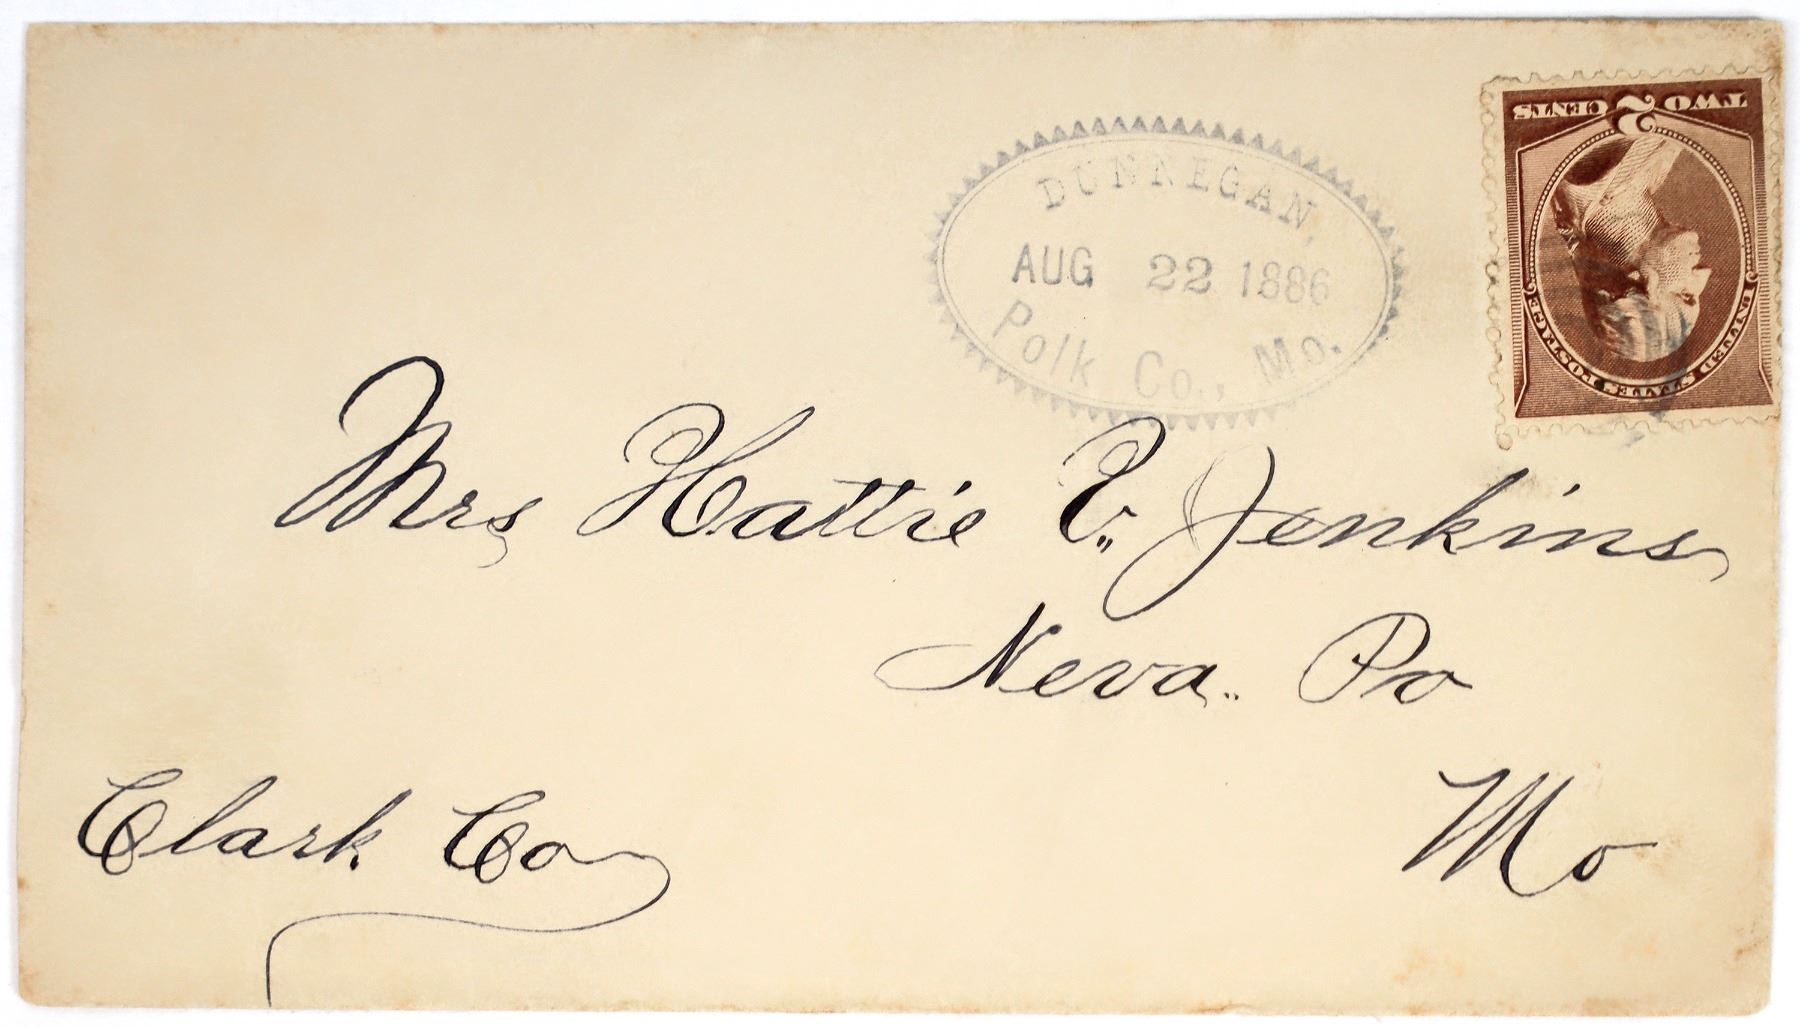 TWO 2 CENTS
UNITED STATES POSTAGE
DUNNEGAN,
AUG 22 1886
Polk Co., Mo.
Mrs Hattie V. Jenkins
Neva.. Po
Mo
Clark Co